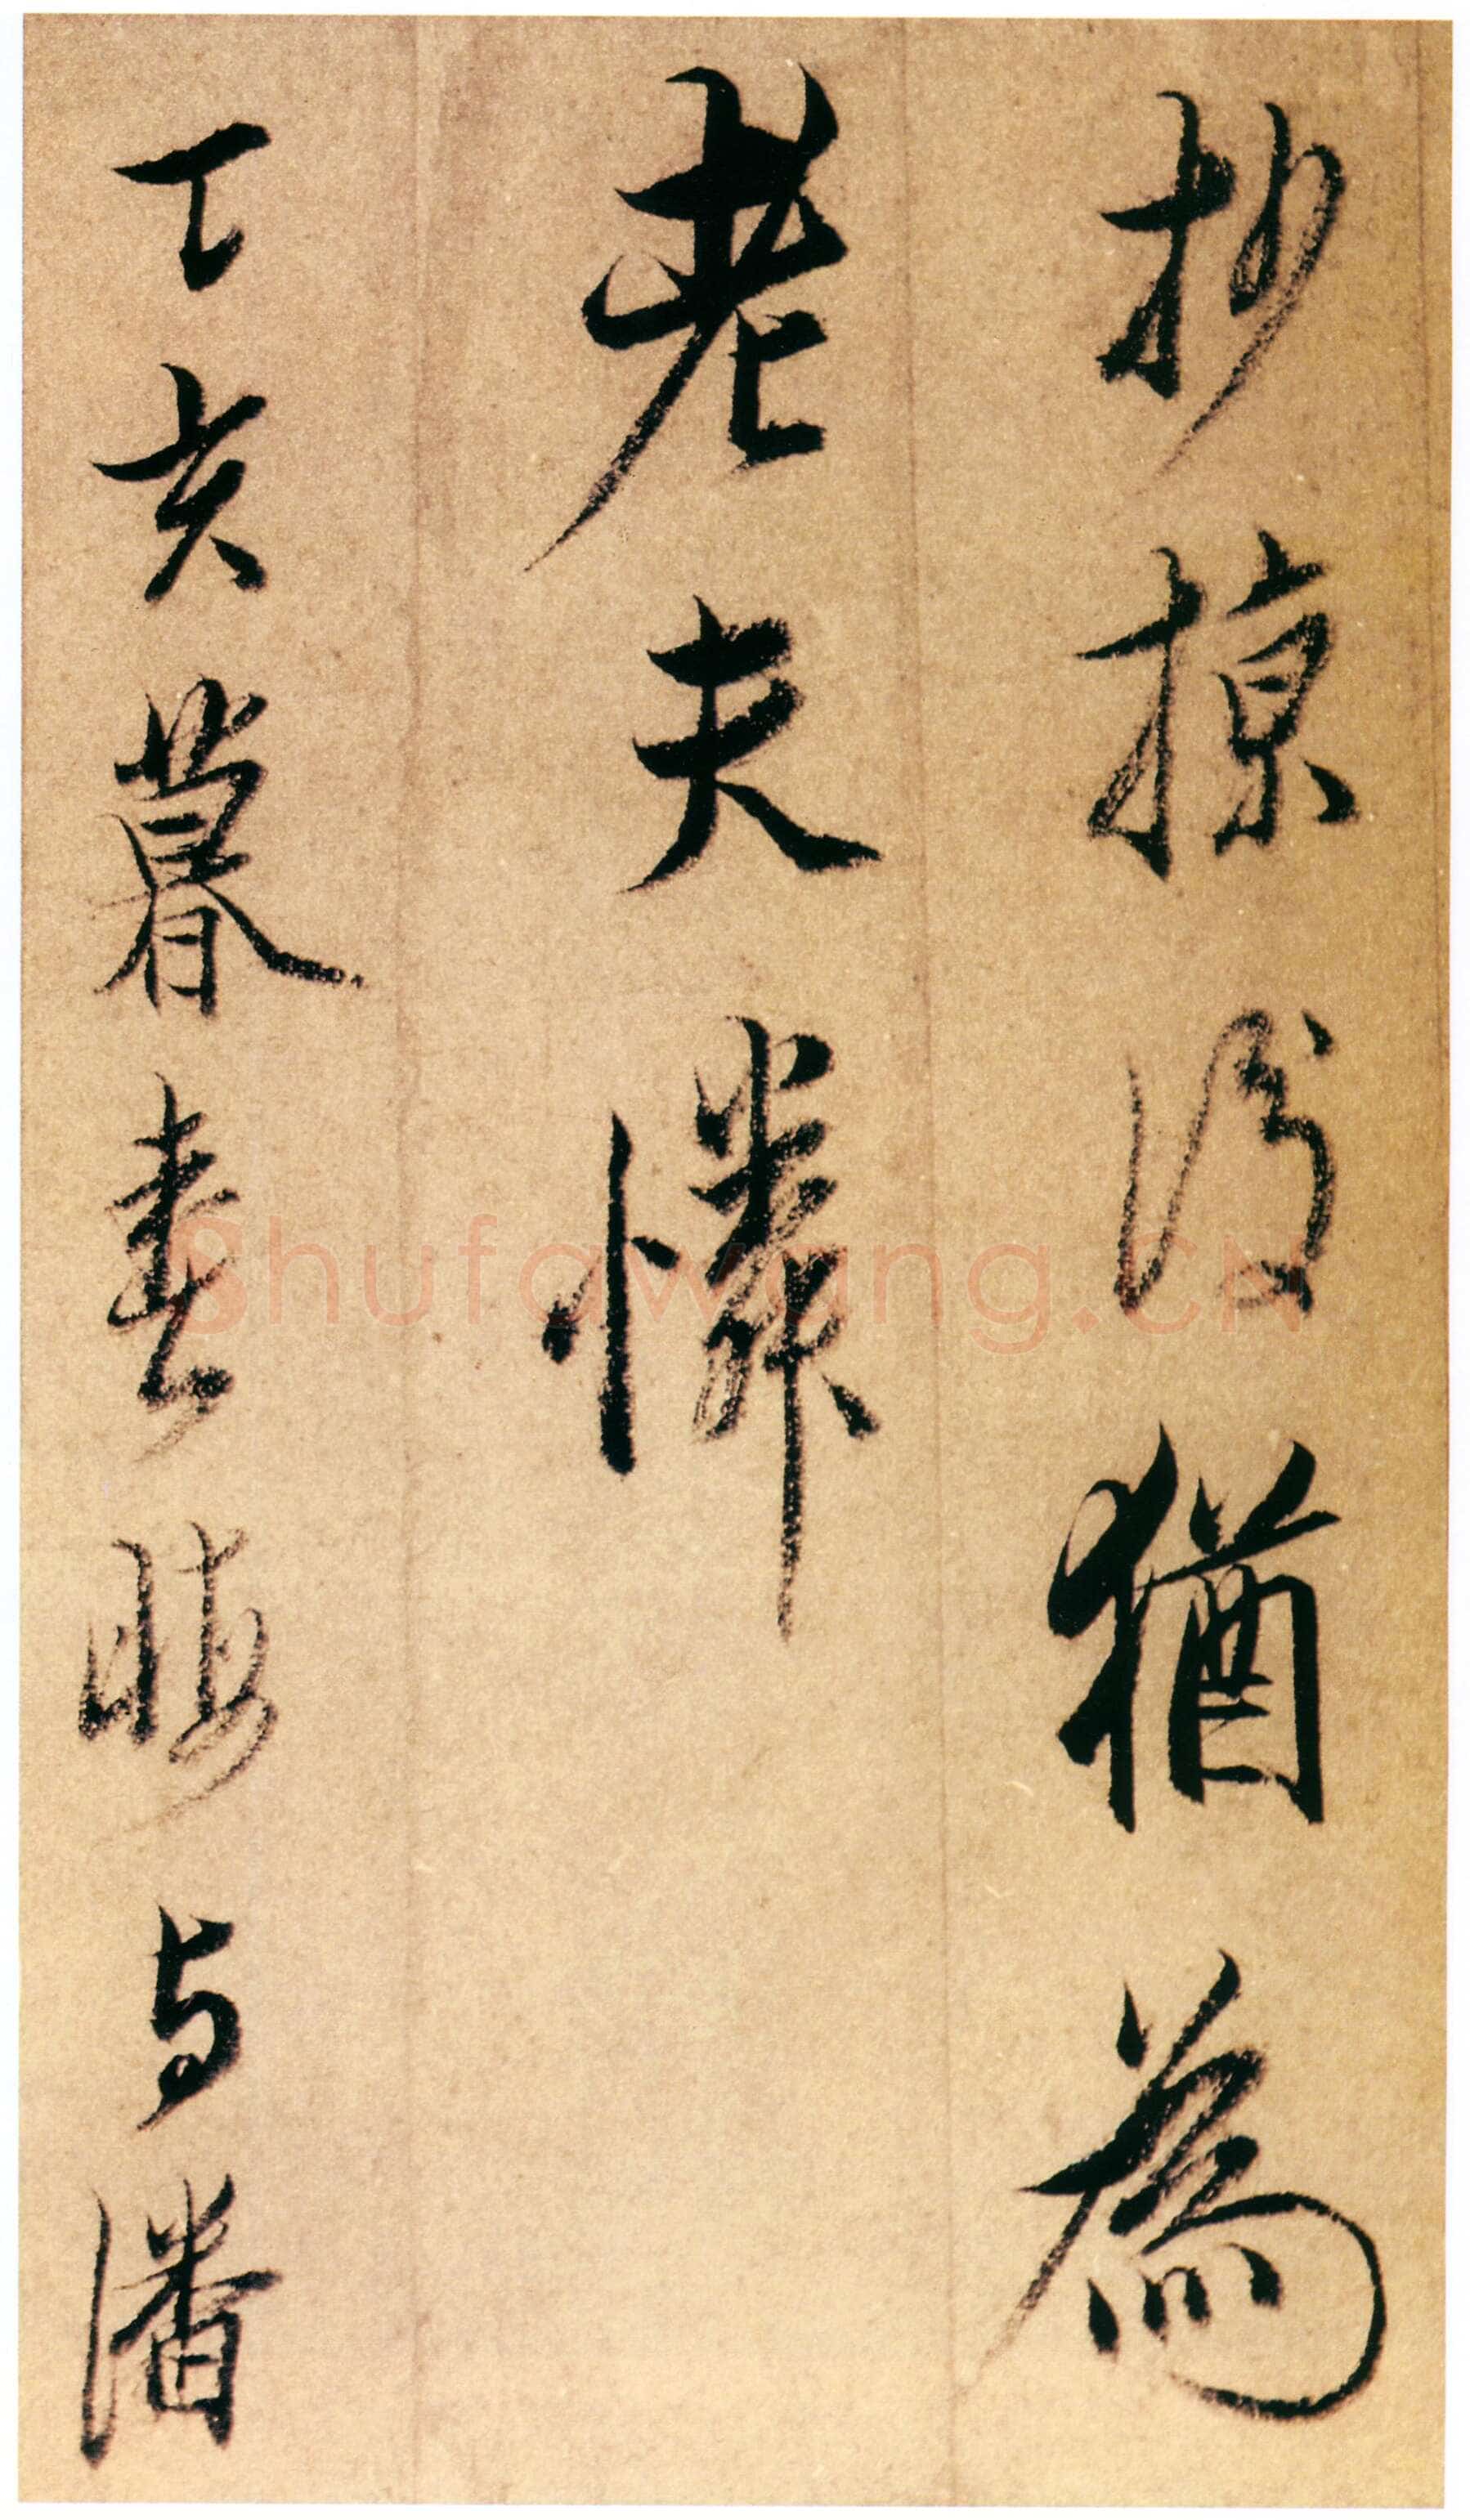 抄掠後猶為
老夫憐
丁亥暮春晦与潘
Shufawang.CN